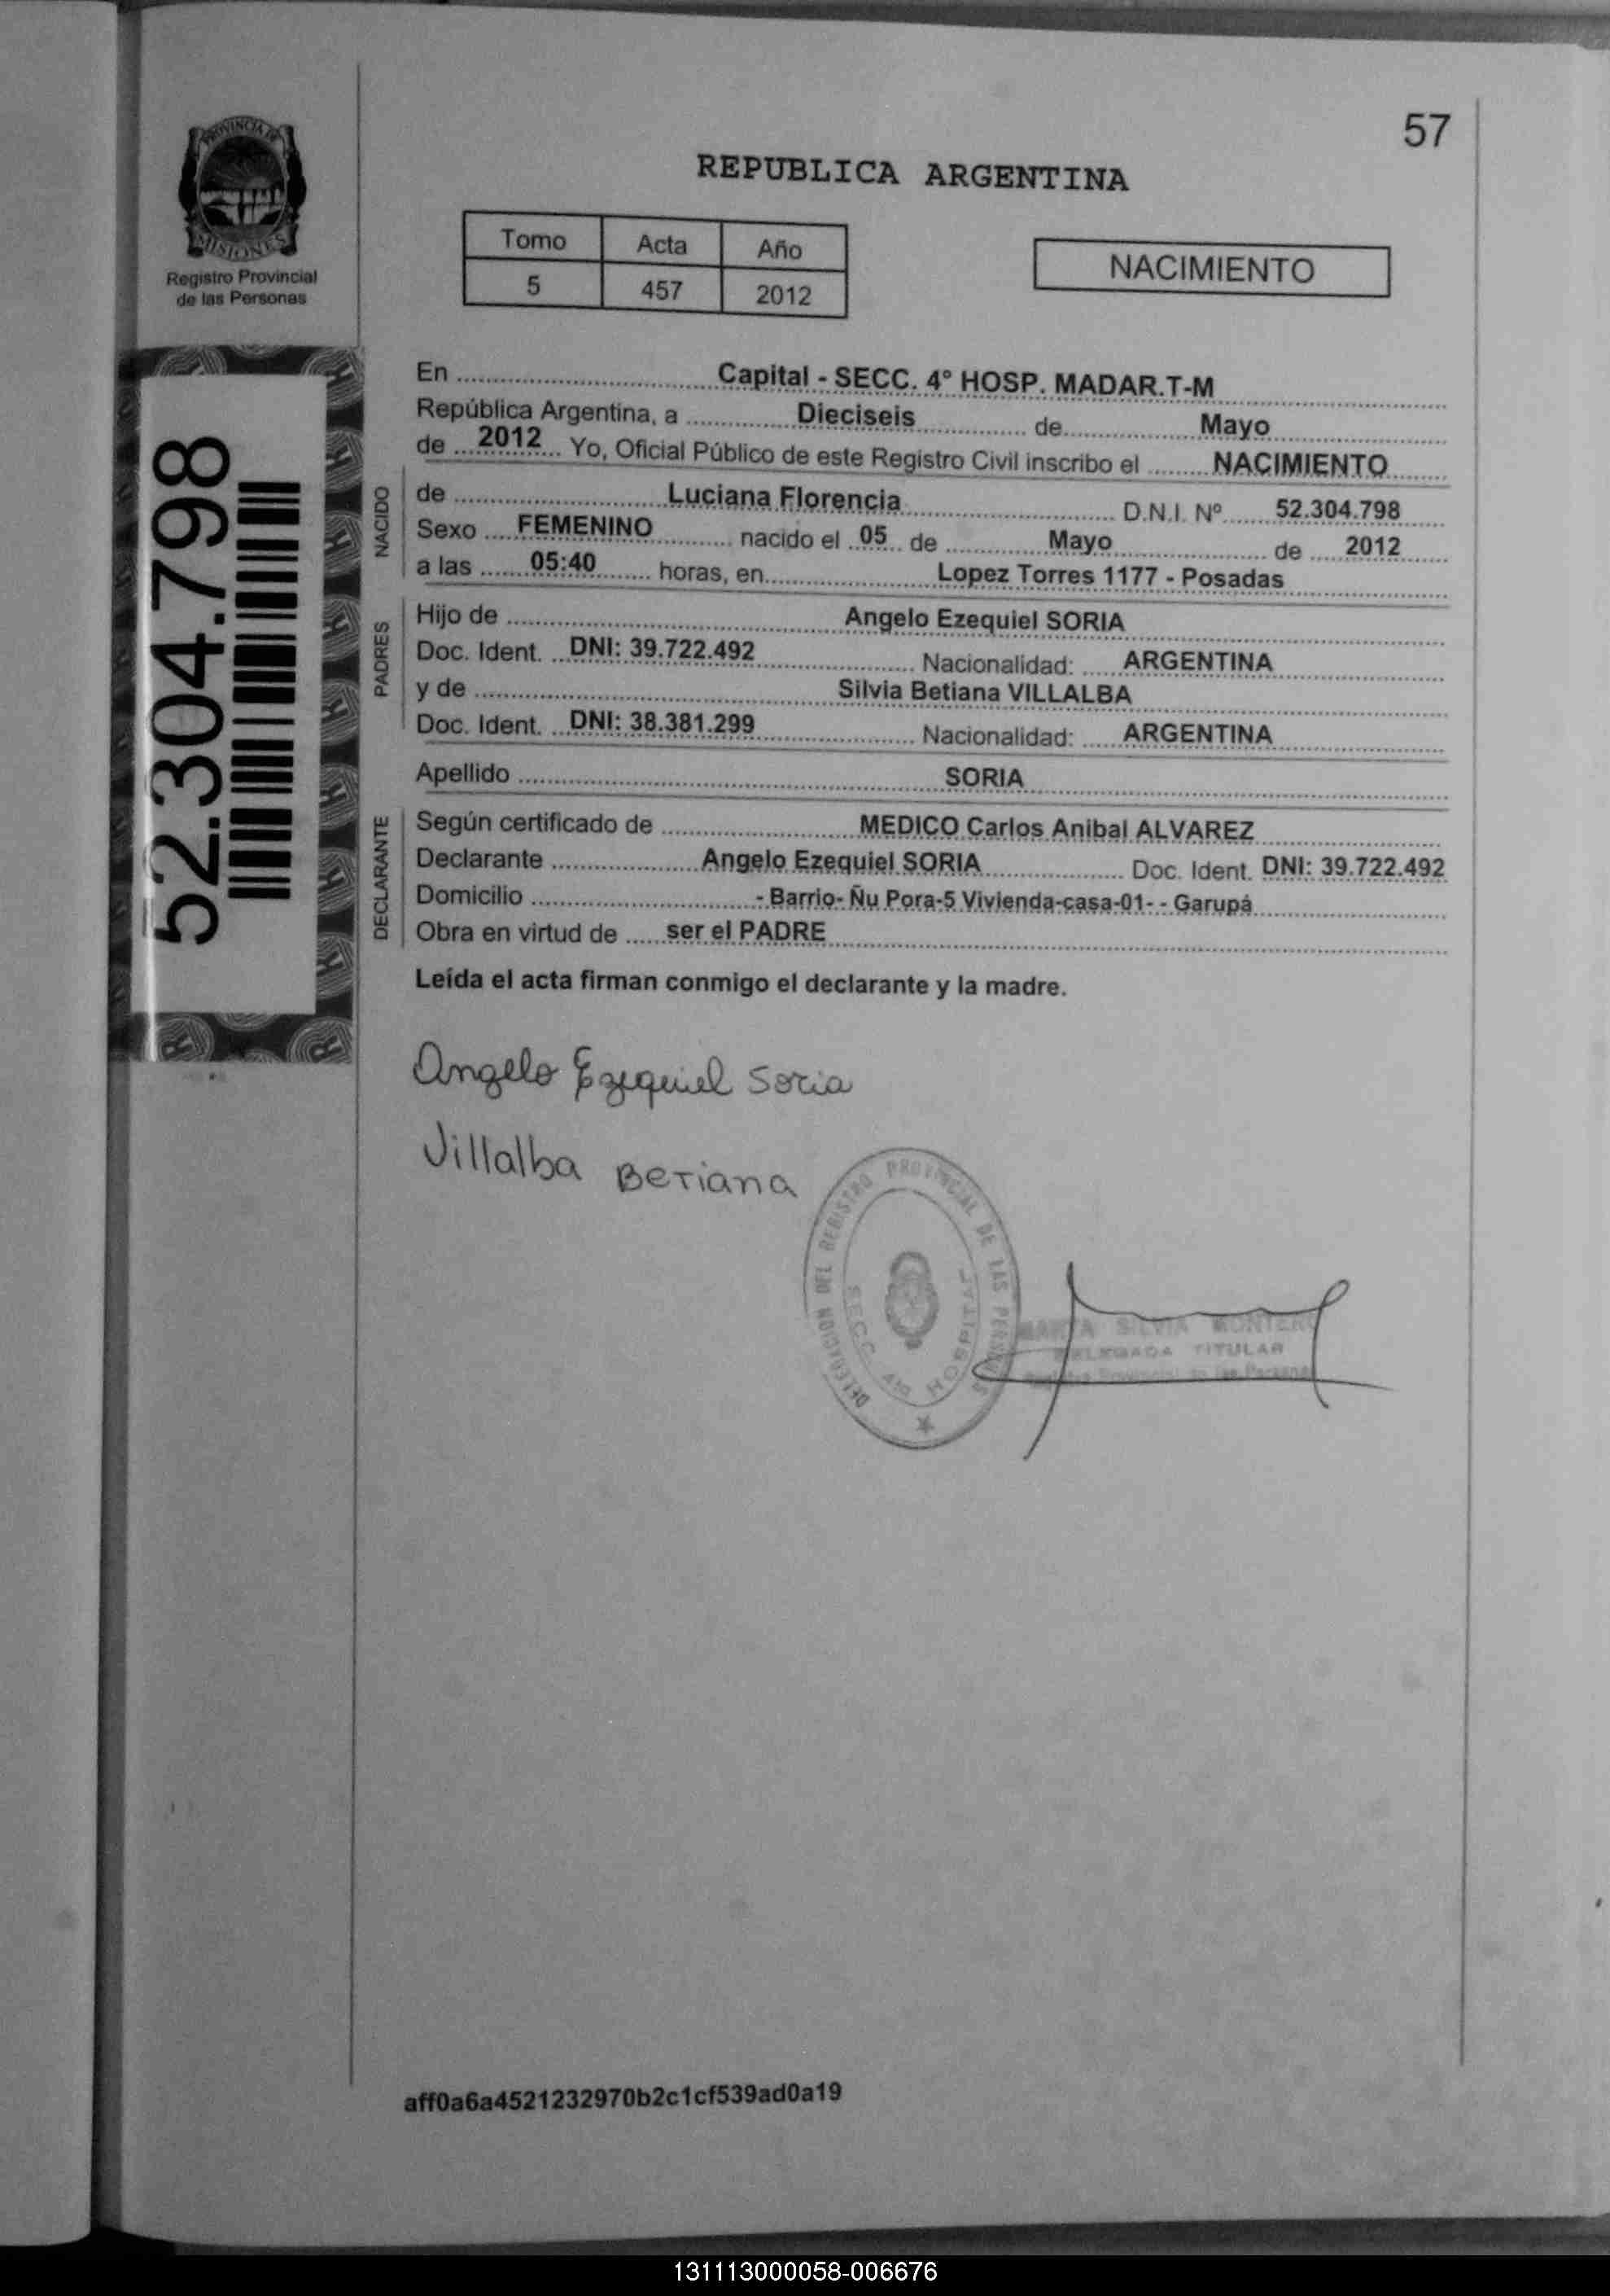 57
PROVINCIA DE
MISIONES
Registro Provincial
de las Personas
REPUBLICA ARGENTINA
Tomo Acta Año
5 457 2012
NACIMIENTO
52.304.798
En Capital - SECC. 4° HOSP. MADAR.T-M
República Argentina, a Dieciseis de Mayo
de 2012 Yo, Oficial Público de este Registro Civil inscribo el NACIMIENTO
NACIDO
de Luciana Florencia D.N.I. Nº 52.304.798
Sexo FEMENINO nacido el 05 de Mayo de 2012
a las 05:40 horas, en Lopez Torres 1177 - Posadas
PADRES
Hijo de Angelo Ezequiel SORIA
Doc. Ident. DNI: 39.722.492 Nacionalidad: ARGENTINA
y de Silvia Betiana VILLALBA
Doc. Ident. DNI: 38.381.299 Nacionalidad: ARGENTINA
Apellido SORIA
DECLARANTE
Según certificado de MEDICO Carlos Anibal ALVAREZ
Declarante Angelo Ezequiel SORIA Doc. Ident. DNI: 39.722.492
Domicilio - Barrio- Ñu Pora-5 Vivienda-casa-01- - Garupá
Obra en virtud de ser el PADRE
Leída el acta firman conmigo el declarante y la madre.
Angelo Ezequiel Soria
Villalba Betiana
DELEGACION DEL REGISTRO PROVINCIAL DE LAS PERSONAS
SECC 4ta HOSPITAL
MARTA SILVIA MONTERO
DELEGADA TITULAR
Registro Provincial de las Personas
aff0a6a4521232970b2c1cf539ad0a19
131113000058-006676